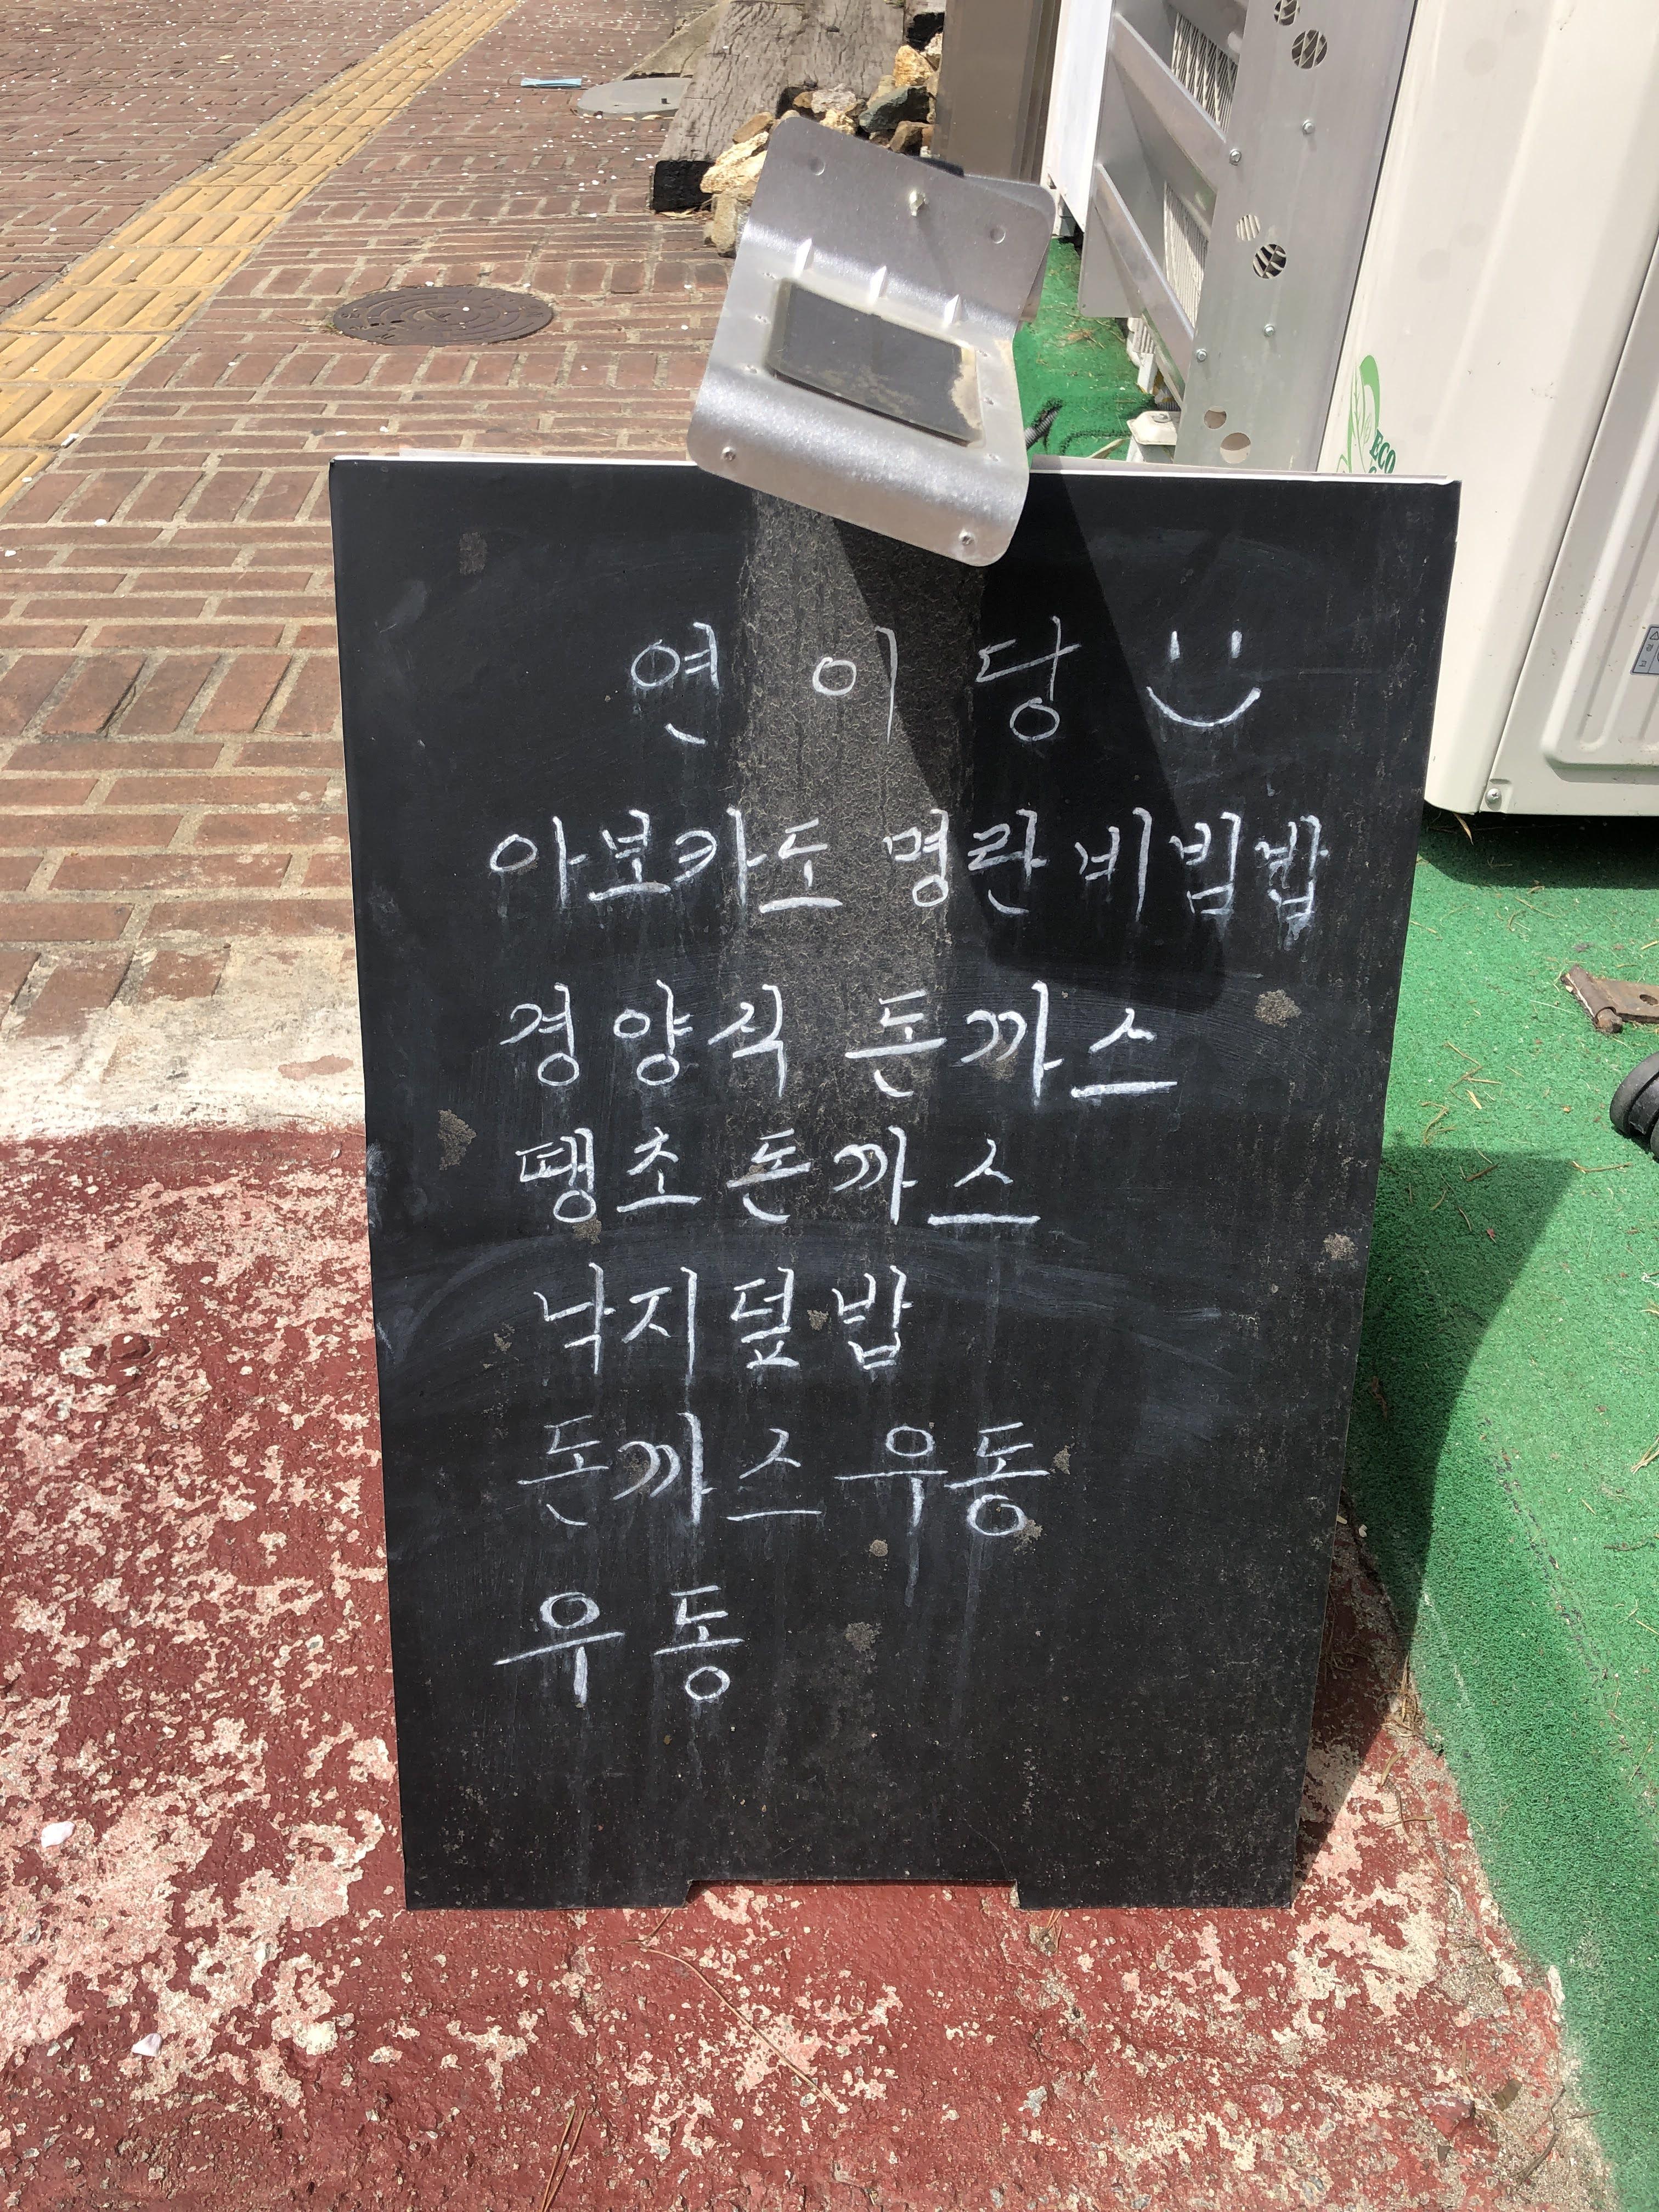 연이당
아보카도 명란 비빔밥
경양식 돈까스
땡초돈까스
낙지덮밥
돈까스우동
우동
ECO